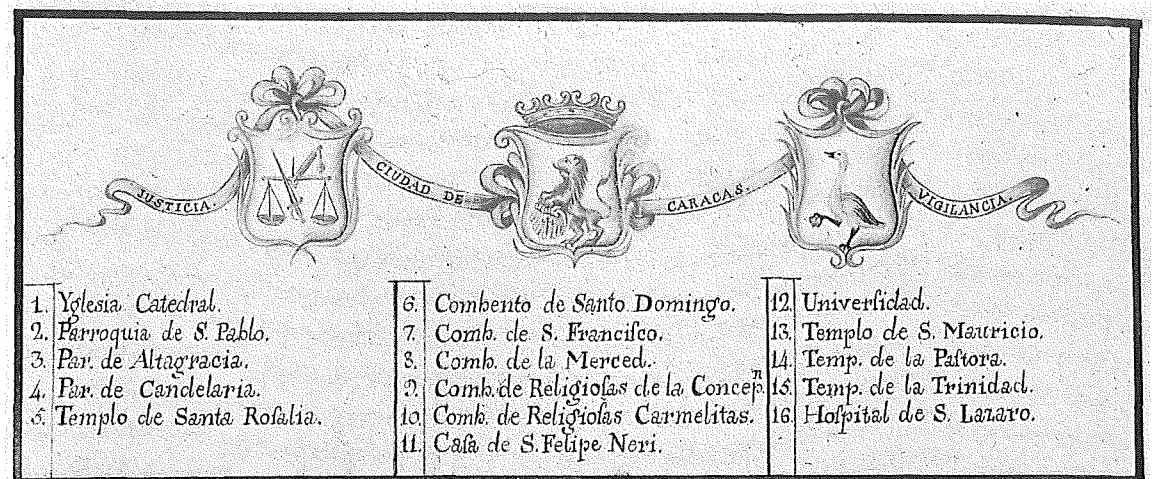 JUSTICIA.
CIUDAD DE
CARACAS.
VIGILANCIA.
1. Yglesia Catedral.
2. Parroquia de S. Pablo.
3. Par. de Altagracia.
4. Par. de Candelaria.
5. Templo de Santa Roſalia.
6. Combento de Santo Domingo.
7. Comb. de S. Franciſco.
8. Comb. de la Merced.
9. Comb. de Religioſas de la Concepⁿ.
10. Comb. de Religioſas Carmelitas.
11. Caſa de S. Felipe Neri.
12. Univerſidad.
13. Templo de S. Mauricio.
14. Temp. de la Paſtora.
15. Temp. de la Trinidad.
16. Hoſpital de S. Lazaro.